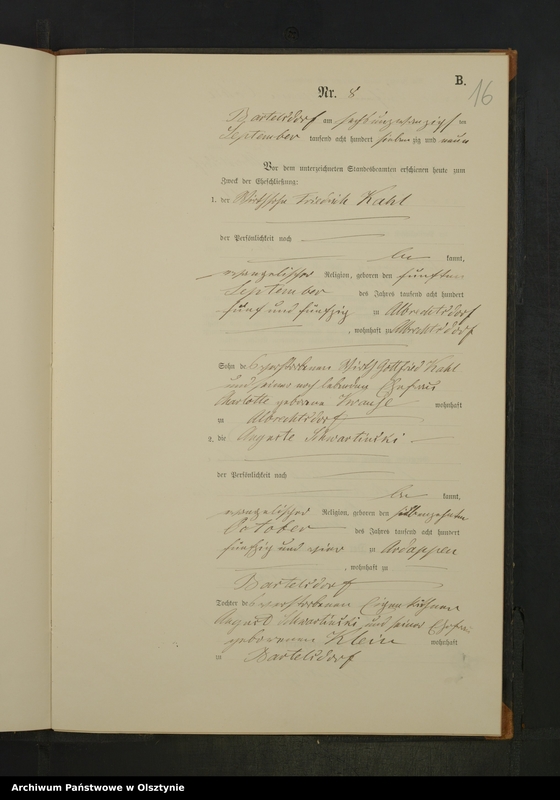 B.
16
Nr. 8
Bartelsdorf am sechsundzwanzigsten
September tausend acht hundert siebenzig und neun
Vor dem unterzeichneten Standesbeamten erschienen heute zum
Zweck der Eheschließung:
1. der Wirthssohn Friedrich Kahl
der Persönlichkeit nach
be kannt,
evangelischer Religion, geboren den fünften
September des Jahres tausend acht hundert
fünf und fünfzig zu Albrechtsdorf
, wohnhaft zu Albrechtsdorf
Sohn des verstorbenen Wirth Gottfried Kahl
und seiner noch lebenden Ehefrau
Charlotte geborene Krause wohnhaft
zu Albrechtsdorf
2. die Auguste Schwartinski
der Persönlichkeit nach
be kannt,
evangelischer Religion, geboren den siebenzehnten
October des Jahres tausend acht hundert
fünfzig und vier zu Ardappen
, wohnhaft zu
Bartelsdorf
Tochter des verstorbenen Eigenkäthner
August Schwartinski und seiner Ehefrau
geborenen Klein wohnhaft
zu Bartelsdorf
Archiwum Państwowe w Olsztynie